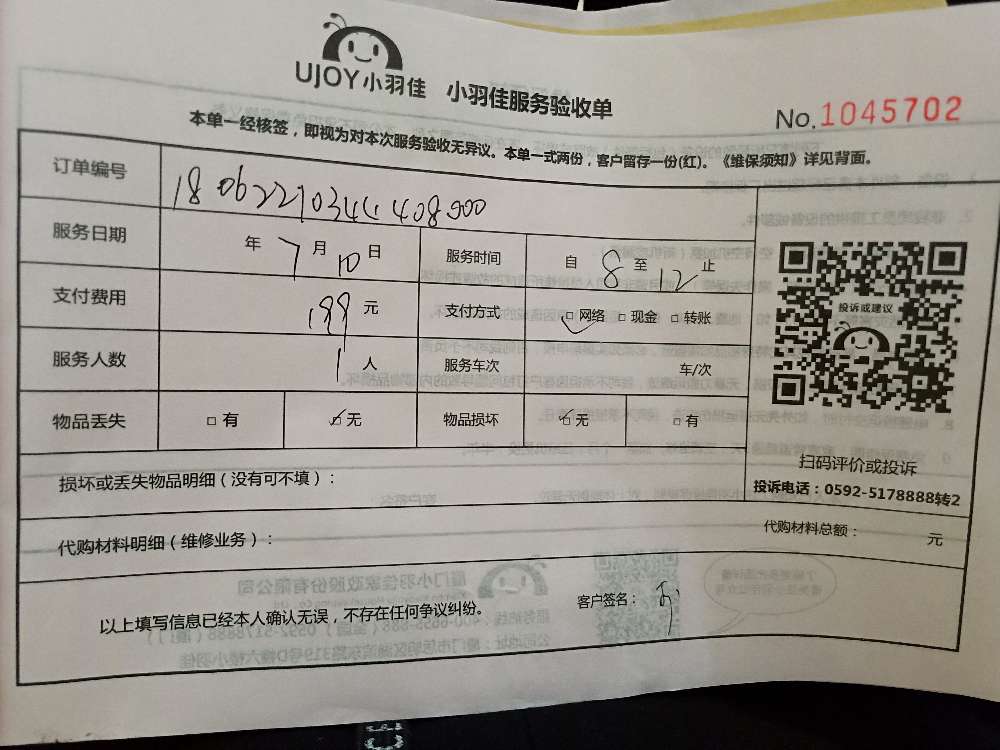 UJOY小羽佳 小羽佳服务验收单
No.1045702
本单一经核签，即视为对本次服务验收无异议。本单一式两份，客户留存一份(红)。《维保须知》详见背面。
订单编号
服务日期 年 7 月 10 日 服务时间 自 8 至 12 止
支付费用 199 元 支付方式 □ 网络 □ 现金 □ 转账
服务人数 1 人 服务车次 车/次
物品丢失 □ 有 ☑ 无 物品损坏 ☑ 无 □ 有
投诉或建议
扫码评价或投诉
投诉电话：0592-5178888转2
损坏或丢失物品明细（没有可不填）：
代购材料明细（维修业务）： 代购材料总额： 元
以上填写信息已经本人确认无误，不存在任何争议纠纷。 客户签名：